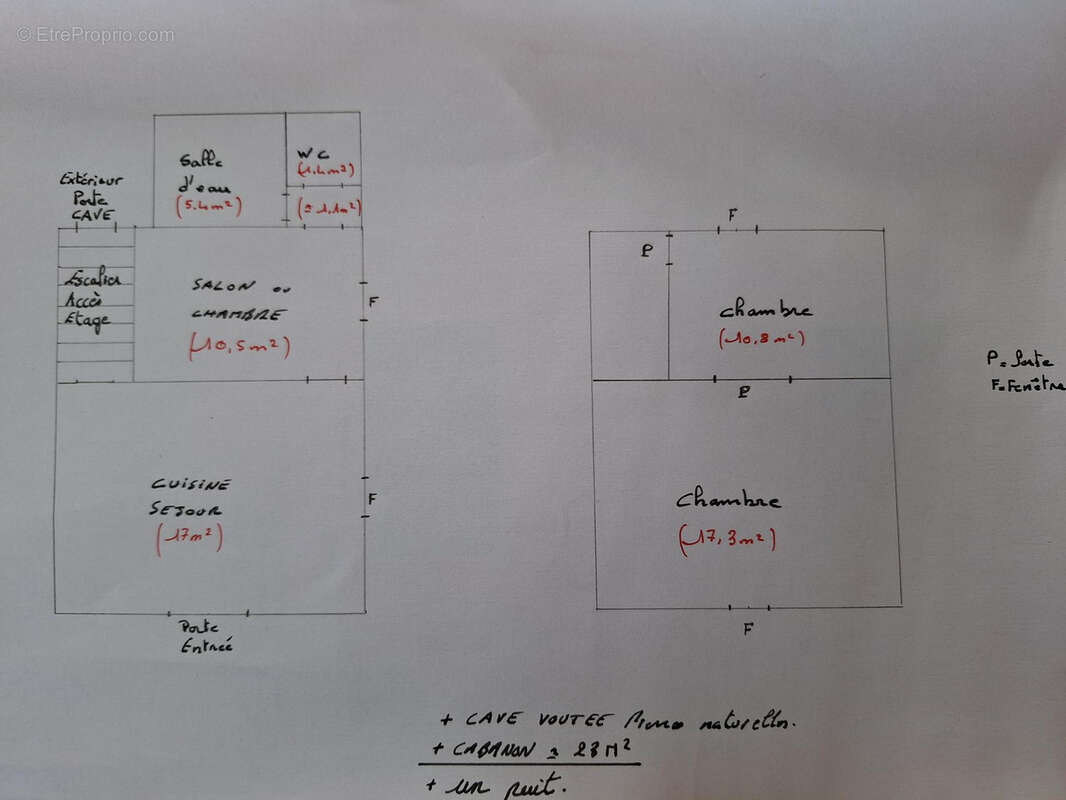 © EtreProprio.com
Extérieur
Porte
CAVE
Salle
d'eau
(5.4m²)
WC
(1.4m²)
(≃ 1,1m²)
Escalier
Accès
Etage
SALON ou
CHAMBRE
(10,5m²)
F
CUISINE
SEJOUR
(17m²)
F
Porte
Entrée
F
P
chambre
(10,8m²)
P
chambre
(17,3m²)
F
P = Porte
F = Fenêtre
+ CAVE VOUTEE Pierres naturelles.
+ CABANON ≃ 23 M²
+ un puit.